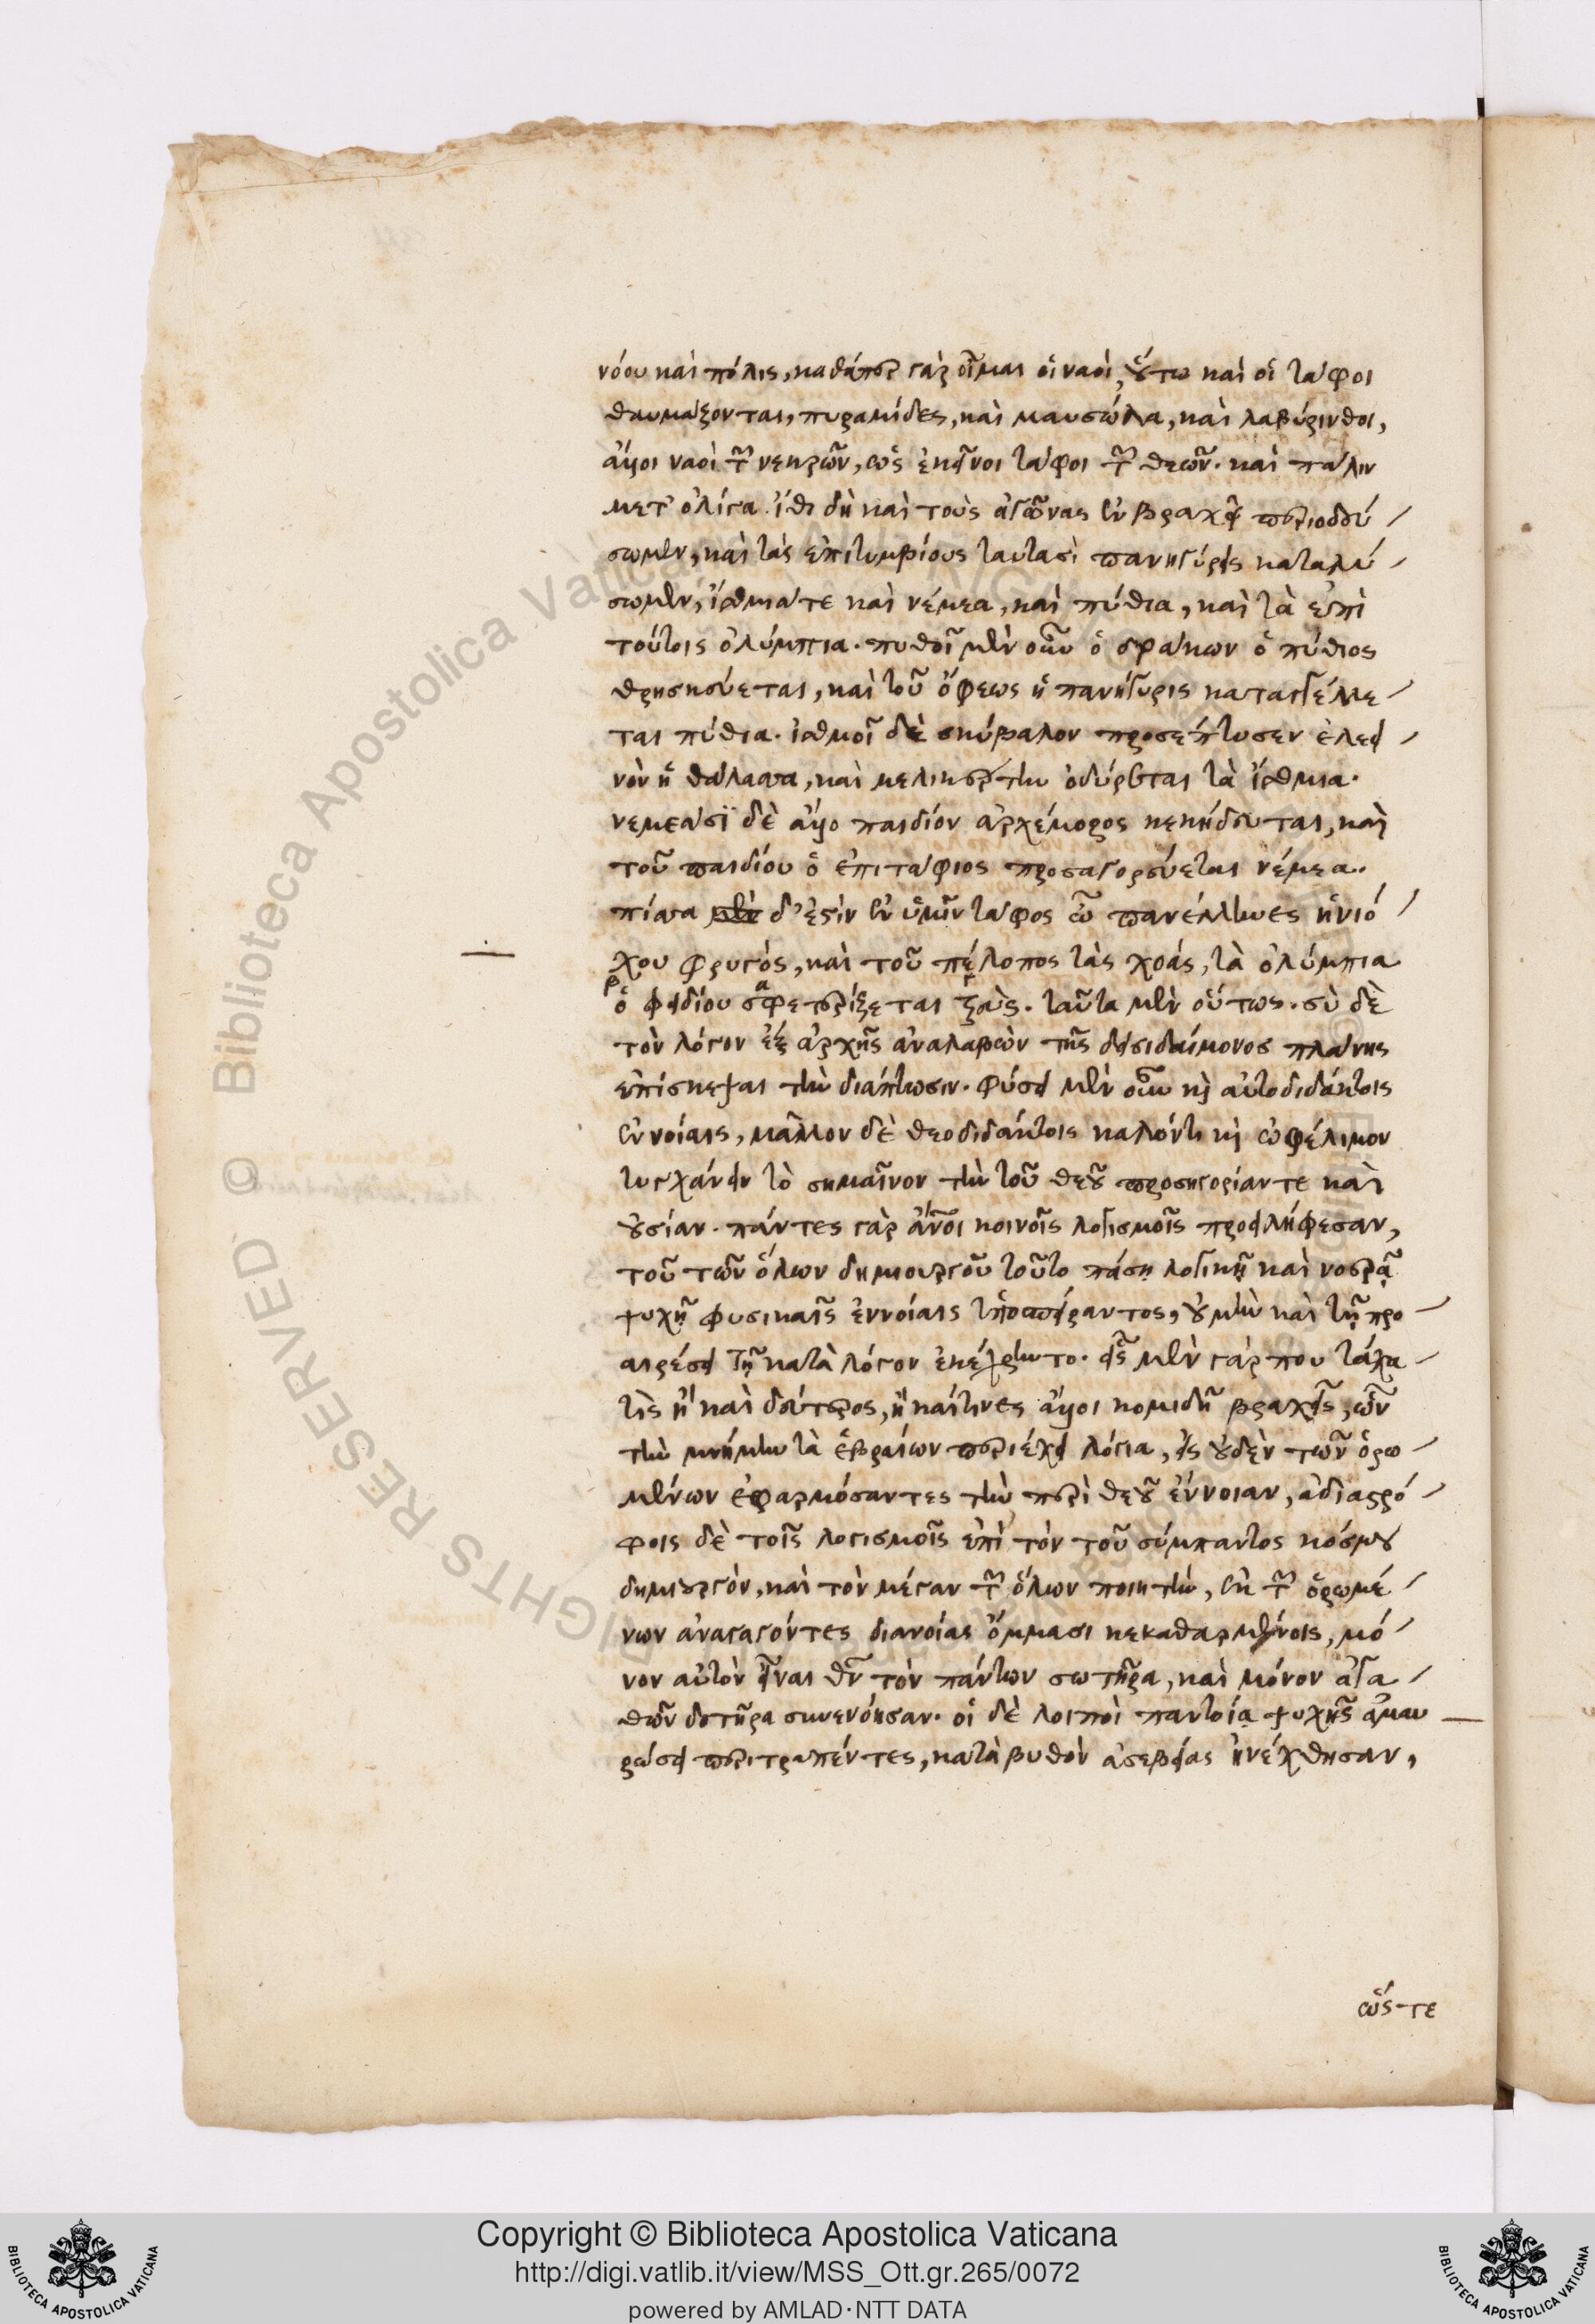 νόου καὶ πόλις, καθάπερ γὰρ οἶμαι οἱ ναοὶ, οὕτω καὶ οἱ τάφοι
θαυμάζονται, πυραμίδες, καὶ μαυσώλα, καὶ λαβύρινθοι,
ἄλλοι ναοὶ τῶν νεκρῶν, ὡς ἐκεῖνοι τάφοι τῶν θεῶν. καὶ πάλιν
μετ' ὀλίγα. ἴθι δὴ καὶ τοὺς ἀγῶνας ἐν βραχεῖ περιοδεύ
σωμεν, καὶ τὰς ἐπιτυμβίους ταυτασὶ πανηγύρεις καταλύ
σωμεν, ἴσθμιά τε καὶ νέμεα, καὶ πύθια, καὶ τὰ ἐπὶ
τούτοις ὀλύμπια. πυθοῖ μὲν οὖν ὁ δράκων ὁ πύθιος
θρησκεύεται, καὶ τοῦ ὄφεως ἡ πανήγυρις καταγγέλλε
ται πύθια. ἰσθμοῖ δὲ σκύβαλον προσέπτυσεν ἐλεει
νὸν ἡ θάλασσα, καὶ μελικέρτην ὀδύρεται τὰ ἴσθμια.
νεμέασϊ δὲ ἄλλο παιδίον ἀρχέμορος κεκήδευται, καὶ
τοῦ παιδίου ὁ ἐπιτάφιος προσαγορεύεται νέμεα.
πίσσα μὲν δ' ἐστὶν ἐν ὑμῖν τάφος ὦ πανέλληνες ἡνιό
χου φρυγὸς, καὶ τοῦ πέλοπος τὰς χοάς, τὰ ὀλύμπια
ὁ φειδίου σφετερίζεται ζεὺς. ταῦτα μὲν οὕτως. σὺ δὲ
τὸν λόγον ἐξ ἀρχῆς ἀναλαβὼν τῆς δεισιδαίμονος πλάνης
ἐπίσκεψαι τὴν διάπτωσιν. φύσει μὲν οὖν κὶ αὐτοδιδάκτοις
ἐννοίαις, μᾶλλον δὲ θεοδιδάκτοις καλόντι κὶ ὠφέλιμον
τυγχάνειν τὸ σημαῖνον τὴν τοῦ θεοῦ προσηγορίαν τε καὶ
οὐσίαν. πάντες γὰρ ἄνοι κοινοῖς λογισμοῖς προειλήφεσαν,
τοῦ τῶν ὅλων δημιουργοῦ τοῦτο πάσῃ λογικῇ καὶ νοερᾷ
ψυχῇ φυσικαῖς ἐννοίαις ὑποσπείραντος, οὐ μὴν καὶ τῇ προ
αιρέσει τῇ κατὰ λόγον ἐκέχρηντο. εἷς μὲν γάρ που τάχα
τὶς ἢ καὶ δεύτερος, ἢ καί τινες ἄλλοι κομιδῇ βραχεῖς, ὧν
τὴν μνήμην τὰ ἑβραίων περιέχει λόγια, εἰς οὐδὲν τῶν ὁρω
μένων ἐφαρμόσαντες τὴν περὶ θεοῦ ἔννοιαν, ἀδιαστρό
φοις δὲ τοῖς λογισμοῖς ἐπὶ τὸν τοῦ σύμπαντος κόσμου
δημιουργὸν, καὶ τὸν μέγαν τῶν ὅλων ποιητὴν, ἐκ τῶν ὁρωμέ
νων ἀναγαγόντες διανοίας ὄμμασι κεκαθαρμένοις, μό
νον αὐτὸν εἶναι θν τὸν πάντων σωτῆρα, καὶ μόνον ἀγα
θῶν δοτῆρα συνενόησαν. οἱ δὲ λοιποὶ παντοίᾳ ψυχῆς ἀμαυ
ρώσει περιτραπέντες, κατὰ βυθὸν ἀσεβείας ἠνέχθησαν,
ὥς τε
Copyright © Biblioteca Apostolica Vaticana
http://digi.vatlib.it/view/MSS_Ott.gr.265/0072
powered by AMLAD·NTT DATA